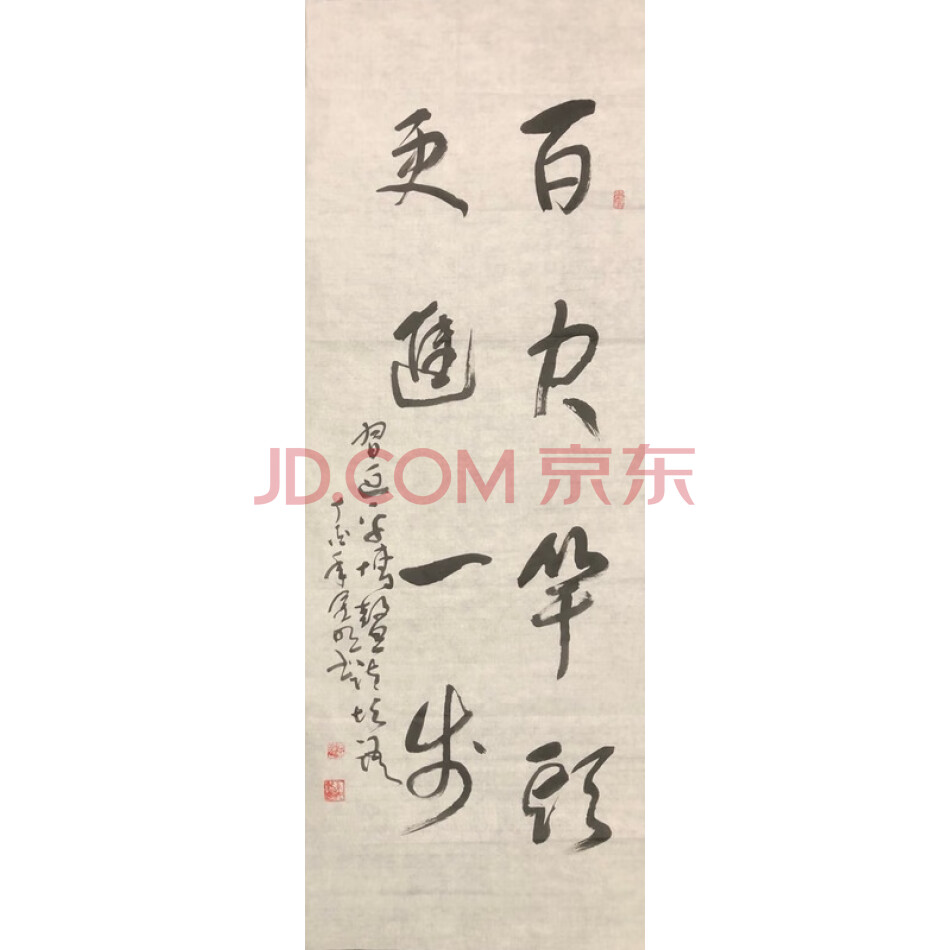 百尺竿頭
更進一步
習近平博鰲論壇語
丁酉年
JD.COM 京东